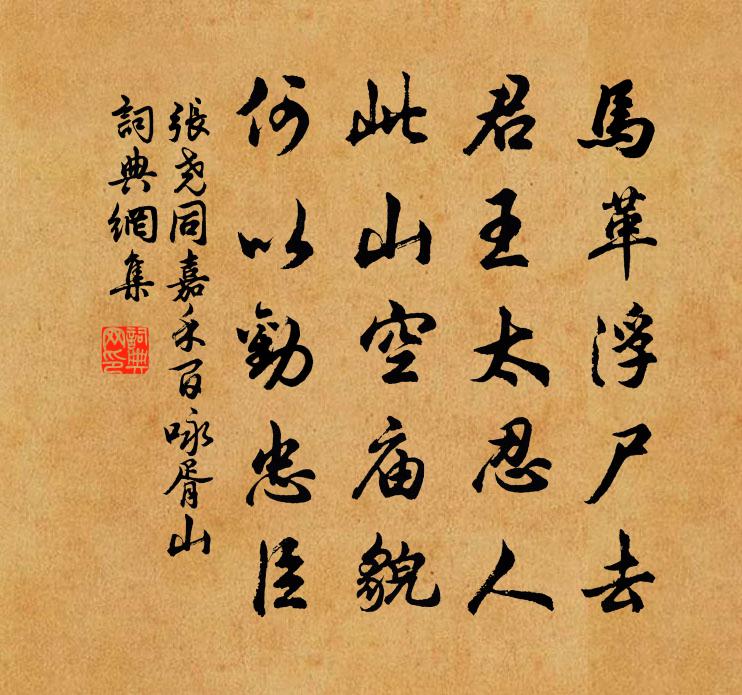 馬革浮尸去
君王太忍人
此山空庙貌
何以勸忠臣
張堯同嘉禾百咏胥山
詞典網集
詞典網印